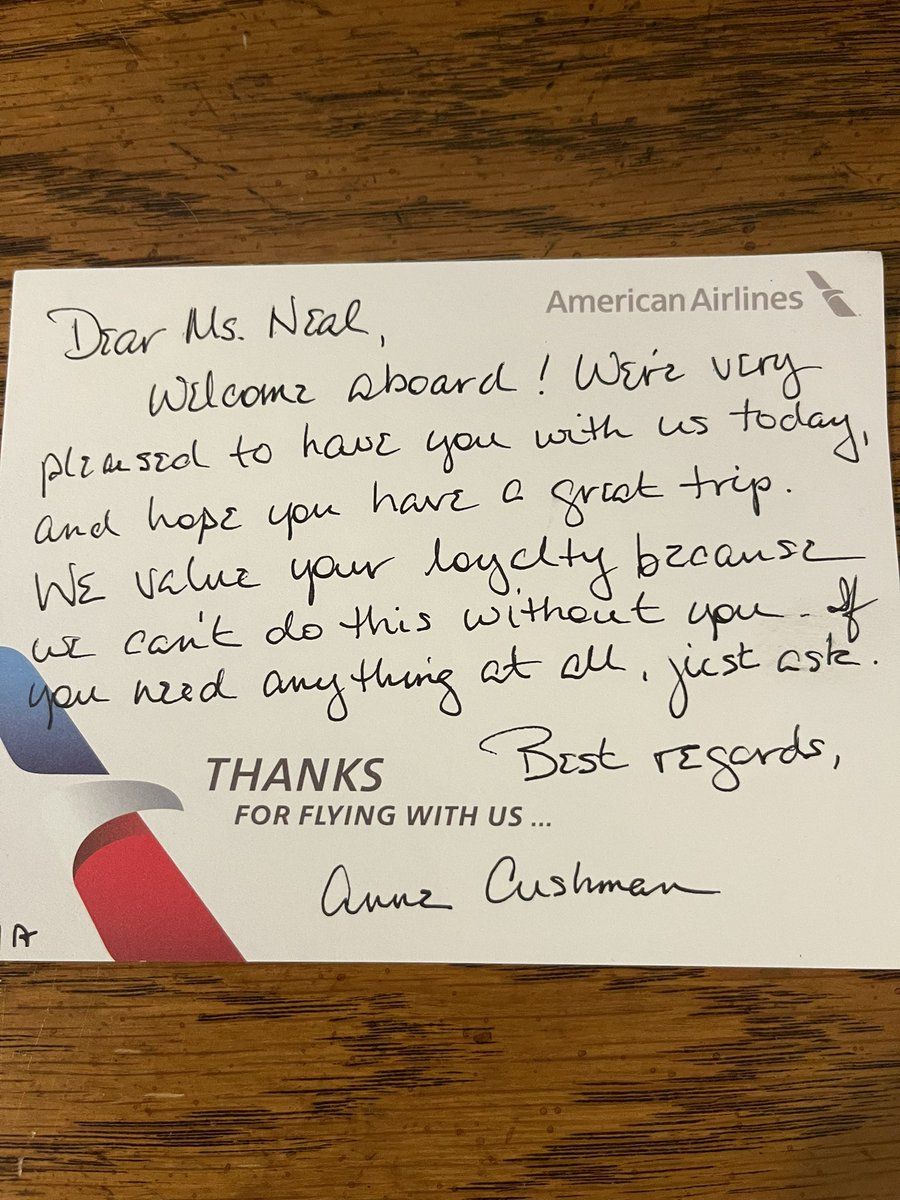 American Airlines
Dear Ms. Neal,
Welcome aboard! We're very
pleased to have you with us today,
and hope you have a great trip.
We value your loyalty because
we can't do this without you. If
you need anything at all, just ask.
Best regards,
THANKS
FOR FLYING WITH US ...
Anne Cushman
1A